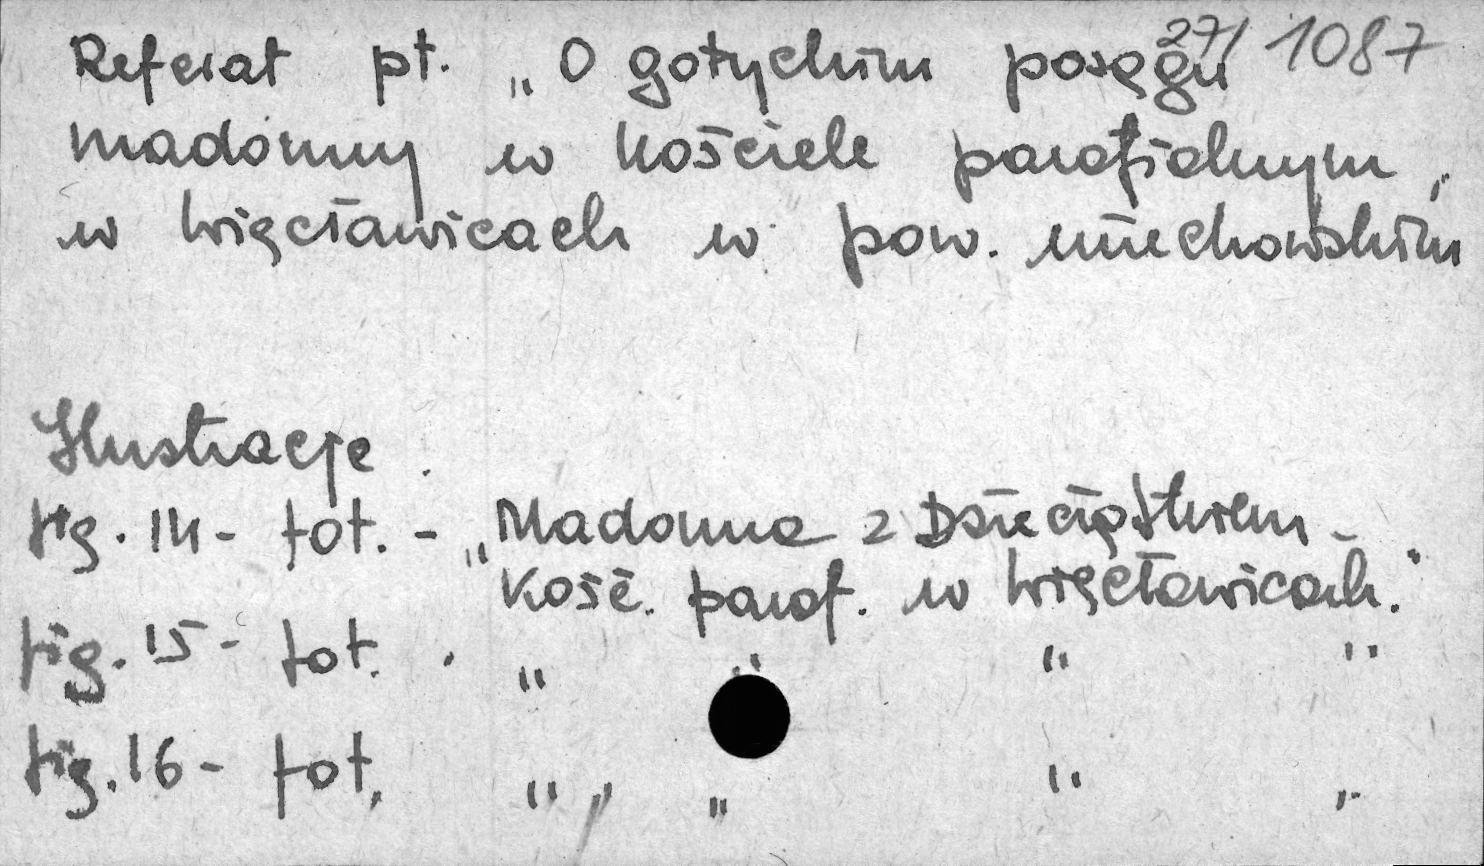 27/ 1087
Referat pt. „O gotyckim posągu
madonny w kościele parafialnym
w Więcławicach w pow. miechowskim"
Ilustracje.
fig. 14 - fot. - „Madonna z Dzieciątkiem -
Kość. paraf. w Więcławicach."
fig. 15 - fot. " " " "
fig. 16 - fot. " " " "